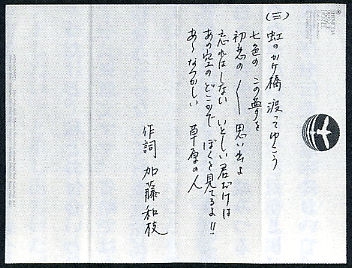 (三) 虹のかけ橋 渡ってゆこう
七色の この夢を
初恋の 〱 思い出よ
忘れはしない いとしい君だけは
あの空の どこかで ぼくを見てるよ!!
あゝなつかしい 草原の人
作詞 加藤和枝